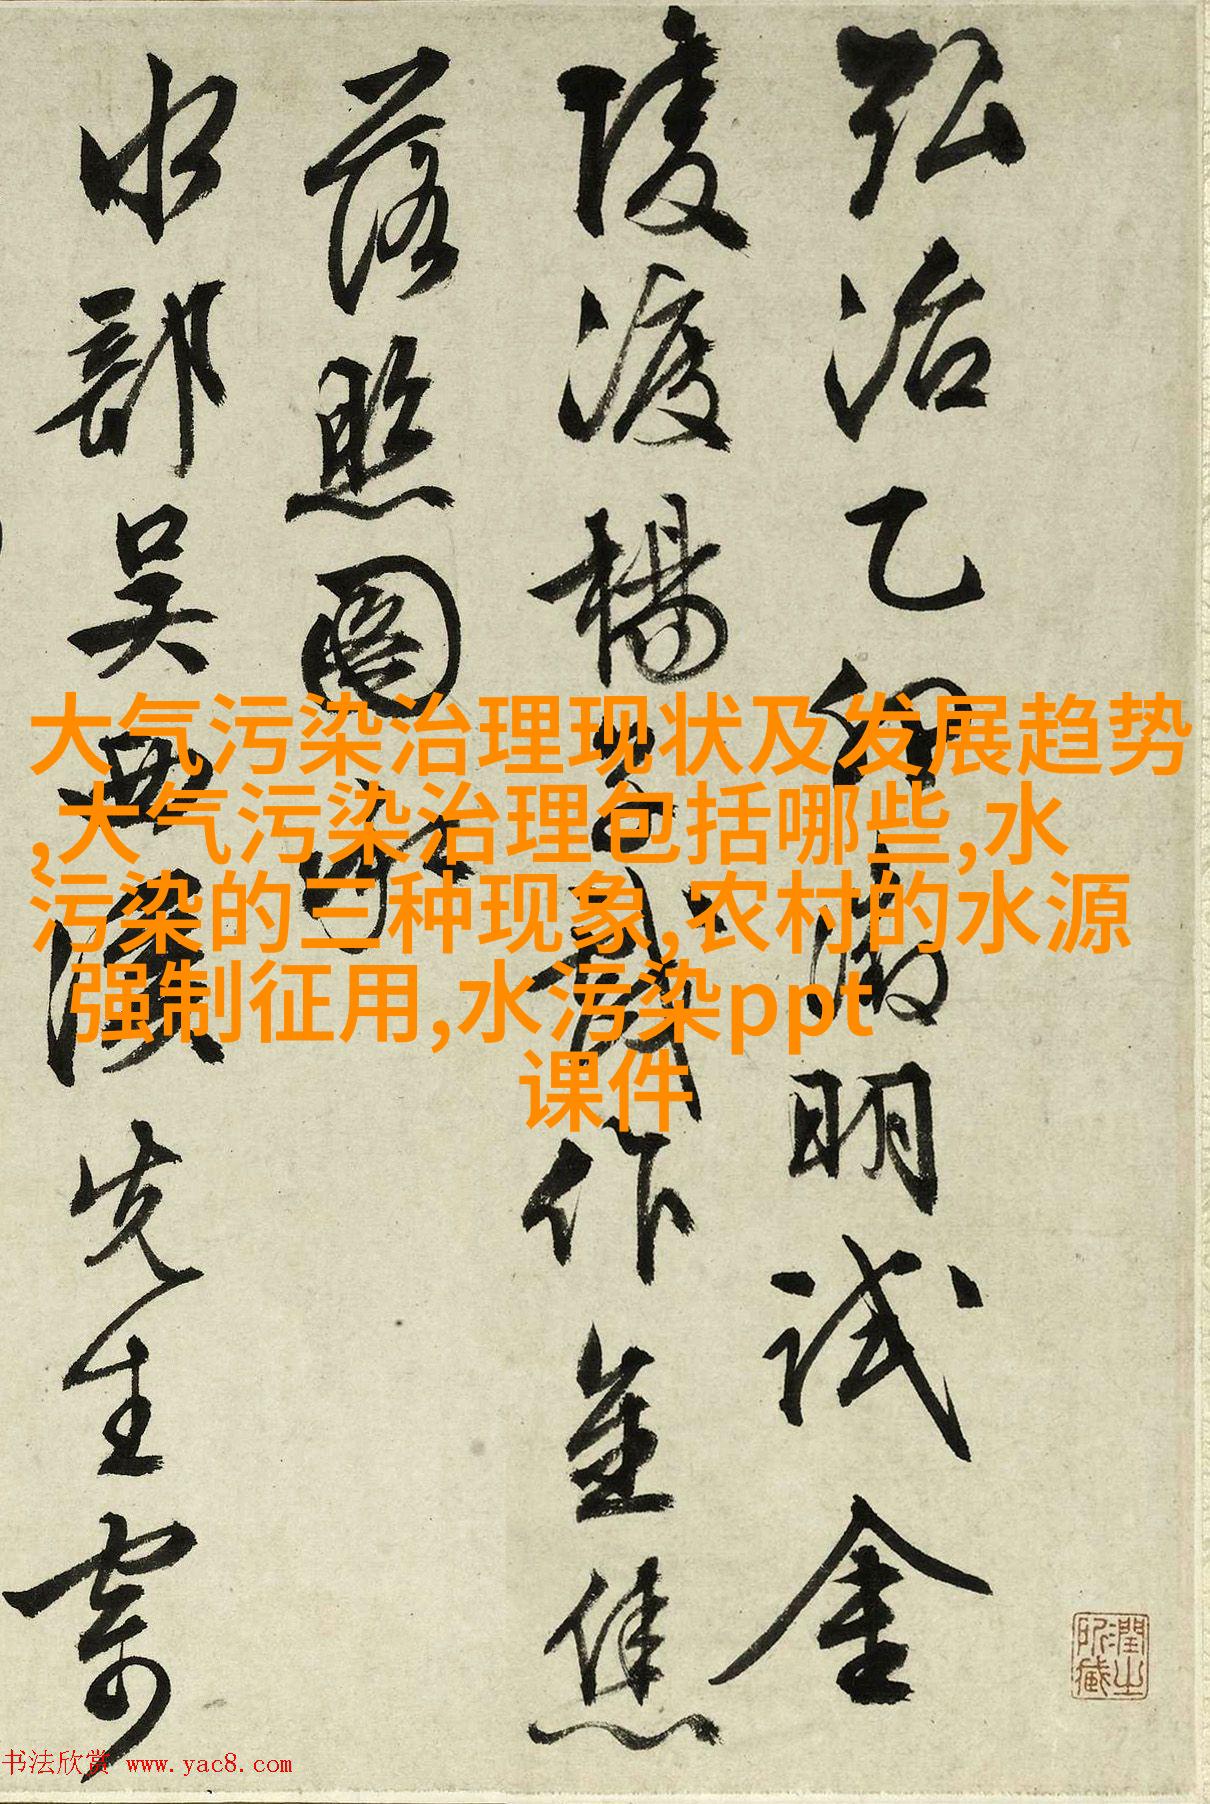 弘治乙卯徵明試金
陵渡楊戲作金焦
落照圖
水部吳西溪先生寄
大气污染治理现状及发展趋势
,大气污染治理包括哪些,水
污染的三种现象,农村的水源
强制征用,水污染ppt
课件
潤之
所藏
书法欣赏 www.yac8.com